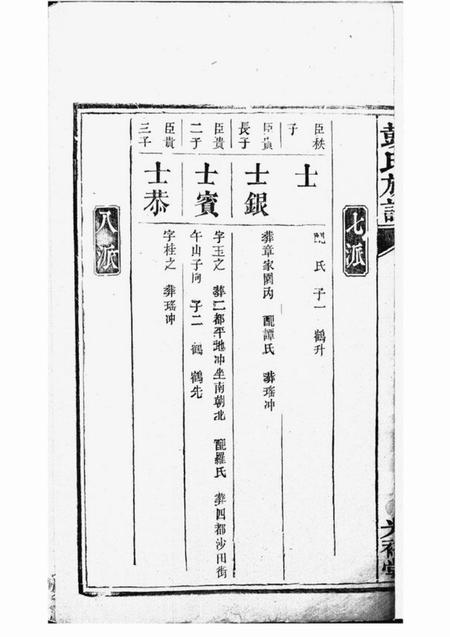 彭氏族譜
七派
臣秩
子
士
氏 子一 鶴升
臣貴
長子
士銀
葬章家園內 配譚氏 葬瑤冲
臣貴
二子
士賓
字玉之 葬二都平地冲坐南朝北 配羅氏 葬四都沙田街
午山子向 子二 鶴 鶴先
臣貴
三子
士恭
字桂之 葬瑤冲
八派